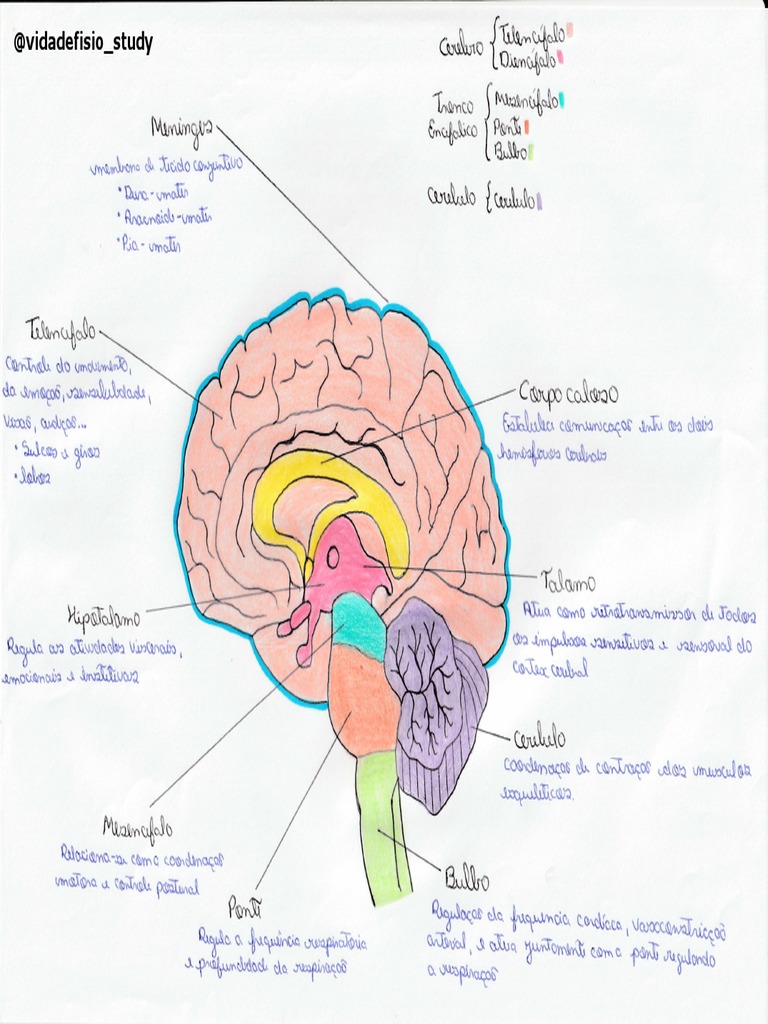 @vidadefisio_study
Cerebro { Telencéfalo
Diencéfalo
Tronco Encefálico { Mesencéfalo
Ponte
Bulbo
Cerebelo { Cerebelo
Meninges
membrana de tecido conjuntivo
• Dura-mater
• Aracnoide-mater
• Pia-mater
Telencéfalo
Controle do movimento,
da emoção, sensibilidade,
visão, audição...
• Sulcos e giros
• lobos
Corpo caloso
Estabelece comunicação entre os dois
hemisférios cerebrais
Tálamo
Atua como retrotransmissor de todos
os impulsos sensitivos e sensorial do
cortex cerebral
Hipotalamo
Regula as atividades viscerais,
emocionais e instititivas
Cerebelo
Coordenação da contração dos musculos
esqueléticos.
Mesencéfalo
Relaciona-se com a coordenação
motora e controle postural
Ponte
Regula a frequência respiratória
e profundidade da respiração
Bulbo
Regulação da frequencia cardíaca, vasoconstricção
arterial, e atua juntamente com a ponte regulando
a respiração